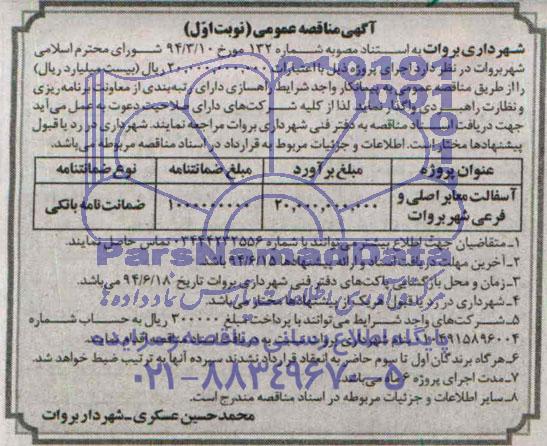 آگهی مناقصه عمومی (نوبت اوّل)
شهرداری بروات به استناد مصوبه شماره ۱۳۲ مورخ ۹۴/۳/۱۰ شورای محترم اسلامی
شهر بروات در نظر دارد اجرای پروژه ذیل با اعتبارات ۲۰,۰۰۰,۰۰۰,۰۰۰ ریال (بیست میلیارد ریال)
را از طریق مناقصه عمومی به پیمانکار واجد شرایط راهسازی دارای رتبه‌بندی از معاونت برنامه‌ریزی
و نظارت راهبردی واگذار نماید. لذا از کلیه شرکت‌های دارای صلاحیت دعوت به عمل می‌آید
جهت دریافت اسناد مناقصه به دفتر فنی شهرداری بروات مراجعه نمایند. شهرداری در رد یا قبول
پیشنهادها مختار است. اطلاعات و جزئیات مربوط به قرارداد در اسناد مناقصه مربوطه می‌باشد.
عنوان پروژه مبلغ برآورد مبلغ ضمانتنامه نوع ضمانتنامه
آسفالت معابر اصلی و فرعی شهر بروات ۲۰,۰۰۰,۰۰۰,۰۰۰ ۱۰۰۰۰۰۰۰۰۰ ضمانت نامه بانکی
۱ـ متقاضیان جهت اطلاع بیشتر می‌توانند با شماره ۰۳۴۴۴۲۳۲۵۵۶ تماس حاصل نمایند.
۲ـ آخرین مهلت دریافت اسناد و ارائه پیشنهادها ۹۴/۶/۱۵ باشد.
۳ـ زمان و محل بازگشایی پاکت‌های دفتر فنی شهرداری بروات تاریخ ۹۴/۶/۱۸ می‌باشد.
۴ـ شهرداری در رد یا قبول هر یک از پیشنهادها مختار می‌باشد.
۵ـ شرکت‌های واجد شرایط می‌توانند با پرداخت مبلغ ۳۰۰۰۰۰ ریال به حساب شماره
به نام شهرداری بروات نسبت به دریافت اسناد مناقصه اقدام نمایند.
۶ـ هرگاه برندگان اول تا سوم حاضر به انعقاد قرارداد نشدند سپرده آنها به ترتیب ضبط خواهد شد.
۷ـ مدت اجرای پروژه ۶ ماه می‌باشد.
۸ـ سایر اطلاعات و جزئیات مربوطه در اسناد مناقصه مندرج است.
محمدحسین عسکری ـ شهردار بروات
پایگاه اطلاع رسانی مناقصه و مزایده
۰۲۱-۸۸۳۴۹۶۷۰-۵